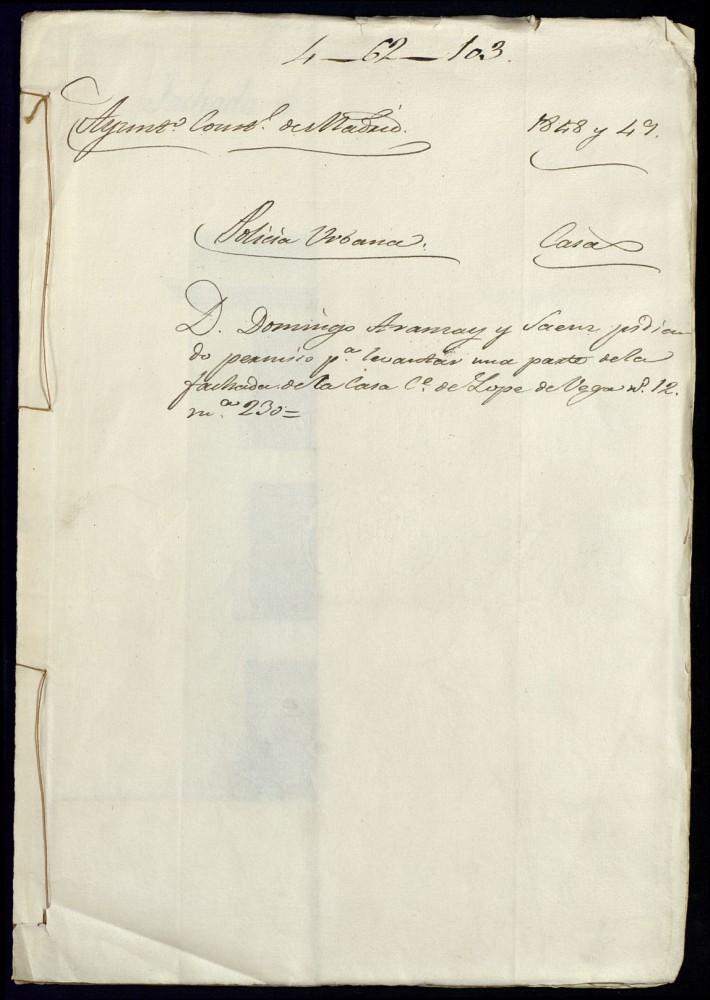 4-62-103.
Ayunto. Constl. de Madrid. 1848 y 49.
Policia Urbana. Casas
D. Domingo Aramay y Saenz pidien
do permiso pa. levantar una parte de la
fachada de la Casa Ce. de Lope de Vega no. 12.
ma. 230=